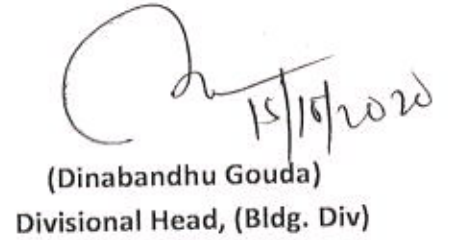 15/10/2020
(Dinabandhu Gouda)
Divisional Head, (Bldg. Div)